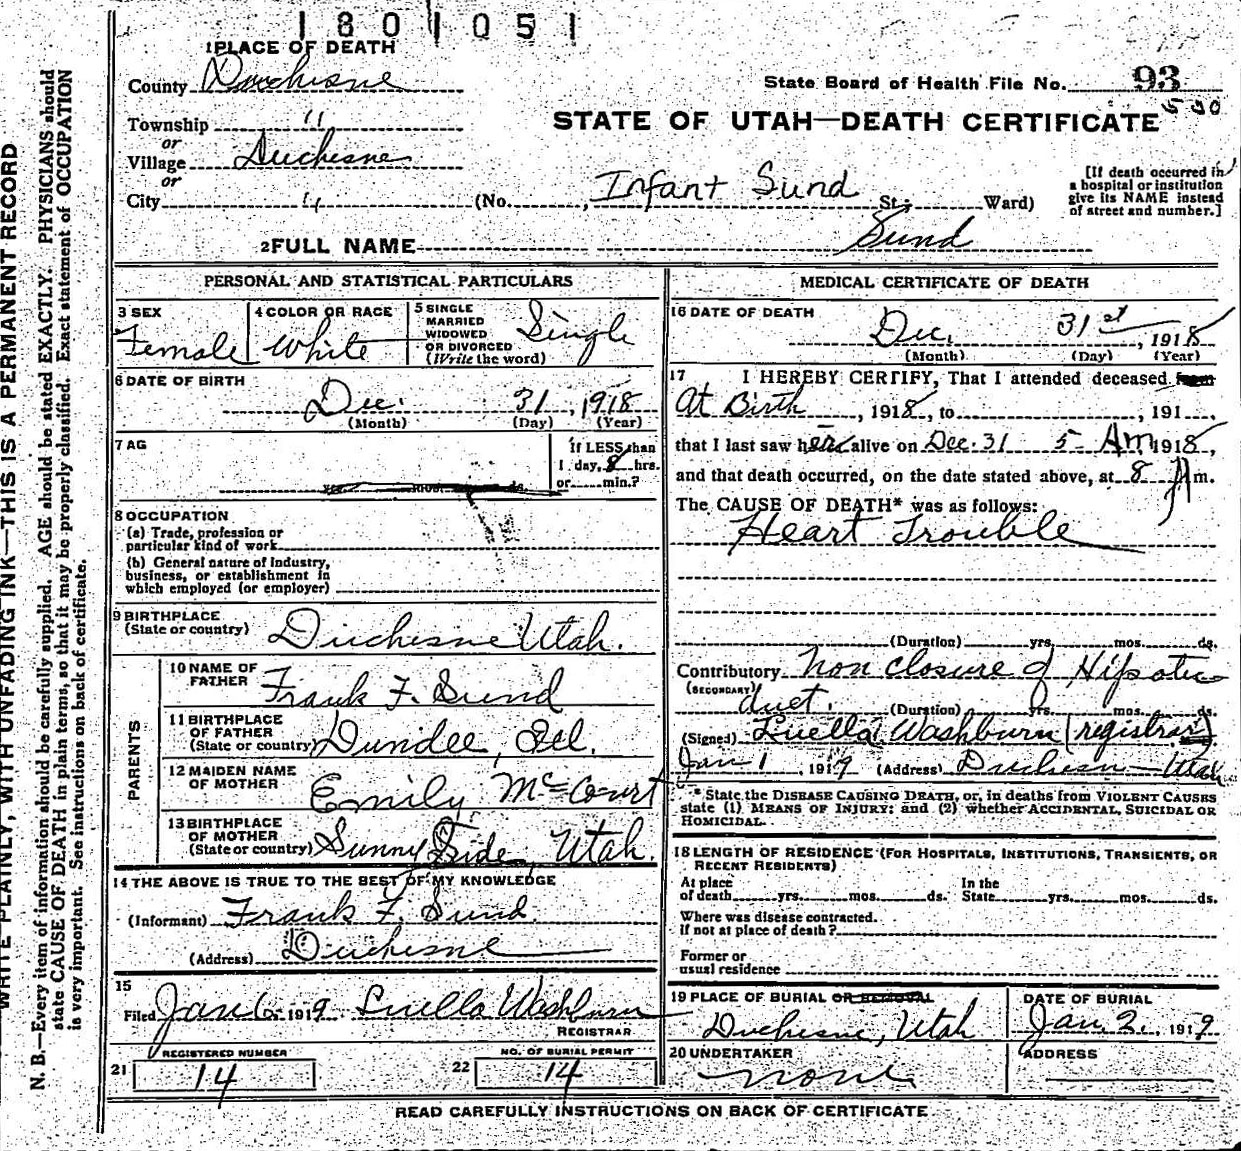 1801051
1 PLACE OF DEATH
County Duchesne
State Board of Health File No. 93
530
Township "
or
STATE OF UTAH—DEATH CERTIFICATE
Village Duchesne
or
City " (No. , Infant Sund St.; Ward)
[If death occurred in
a hospital or institution
give its NAME instead
of street and number.]
2 FULL NAME Sund
PERSONAL AND STATISTICAL PARTICULARS
3 SEX
Female
4 COLOR OR RACE
White
5 SINGLE
MARRIED
WIDOWED
OR DIVORCED
(Write the word)
Single
6 DATE OF BIRTH
Dec. 31, 1918
(Month) (Day) (Year)
7 AG
If LESS than
1 day, 8 hrs.
or min.?
8 OCCUPATION
(a) Trade, profession or
particular kind of work
(b) General nature of Industry,
business, or establishment in
which employed (or employer)
9 BIRTHPLACE
(State or country) Duchesne Utah.
PARENTS
10 NAME OF
FATHER Frank F. Sund
11 BIRTHPLACE
OF FATHER
(State or country) Dundee, Ill.
12 MAIDEN NAME
OF MOTHER Emily McCourt
13 BIRTHPLACE
OF MOTHER
(State or country) Sunny Side, Utah
14 THE ABOVE IS TRUE TO THE BEST OF MY KNOWLEDGE
(Informant) Frank F. Sund
(Address) Duchesne
15
Filed Jan 6, 1919 Luella Washburn
REGISTRAR
REGISTERED NUMBER
21 14
NO. OF BURIAL PERMIT
22 14
MEDICAL CERTIFICATE OF DEATH
16 DATE OF DEATH
Dec. 31st, 1918
(Month) (Day) (Year)
17 I HEREBY CERTIFY, That I attended deceased from
At Birth, 1918, to , 191 ,
that I last saw her alive on Dec. 31 5 - Am 1918,
and that death occurred, on the date stated above, at 8 Am.
The CAUSE OF DEATH* was as follows:
Heart Trouble
(Duration) yrs. mos. ds.
Contributory Non closure of
(SECONDARY)
duct. (Duration) yrs. mos. ds.
(Signed) Luella Washburn (registrar)
Jan 1, 1919 (Address) Duchesn— Utah
* State the DISEASE CAUSING DEATH, or, in deaths from VIOLENT CAUSES
state (1) MEANS OF INJURY; and (2) whether ACCIDENTAL, SUICIDAL OR
HOMICIDAL.
18 LENGTH OF RESIDENCE (FOR HOSPITALS, INSTITUTIONS, TRANSIENTS, OR
RECENT RESIDENTS)
At place
of death yrs. mos. ds.
In the
State yrs. mos. ds.
Where was disease contracted.
if not at place of death?
Former or
usual residence
19 PLACE OF BURIAL OR REMOVAL
Duchesne, Utah
DATE OF BURIAL
Jan. 2., 1919
20 UNDERTAKER
none
ADDRESS
READ CAREFULLY INSTRUCTIONS ON BACK OF CERTIFICATE
WRITE PLAINLY, WITH UNFADING INK—THIS IS A PERMANENT RECORD
N. B.—Every item of information should be carefully supplied. AGE should be stated EXACTLY. PHYSICIANS should
state CAUSE OF DEATH in plain terms, so that it may be properly classified. Exact statement of OCCUPATION
is very important. See instructions on back of certificate.